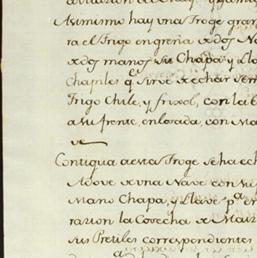 Asimismo hay una Troge gran
ra el Trigo en greña x dos Na
x dos manos su Chapa y Lla
Chapiles qᵉ sirve x echar Sem
Trigo Chile, y frixol, con la E
a su frente, enlosada, con Ma
x
Contigua a esta Troge se ha ech
Adove x una Nave con su
Mano Chapa, y Llave pᵃ en
rarion la Cosecha x Mai
sus Pretiles correspondientes